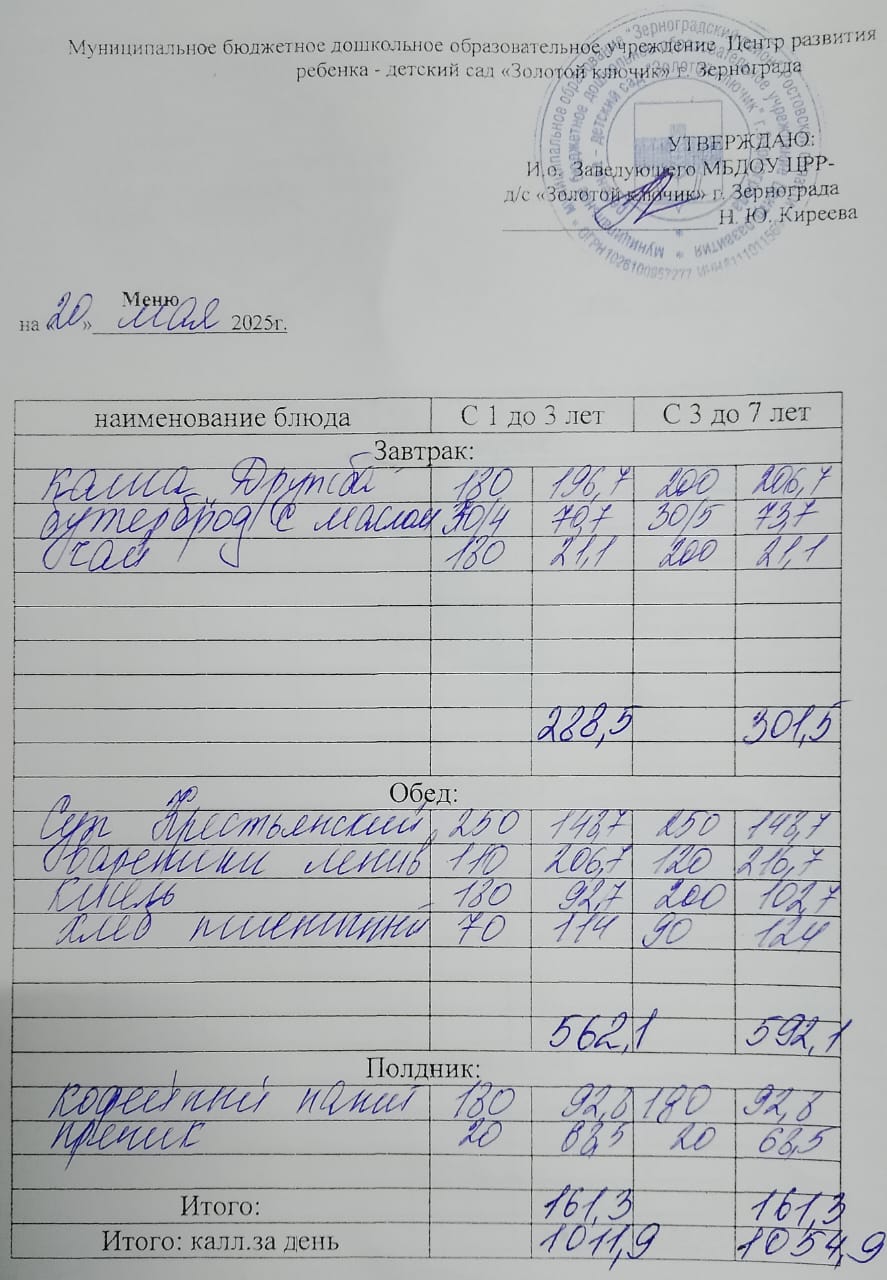 Муниципальное бюджетное дошкольное образовательное учреждение Центр развития
ребенка - детский сад «Золотой ключик» г. Зернограда
УТВЕРЖДАЮ:
И.о. Заведующего МБДОУ ЦРР-
д/с «Золотой ключик» г. Зернограда
Н. Ю. Киреева
Меню
на «20» мая 2025г.
наименование блюда С 1 до 3 лет С 3 до 7 лет
Завтрак:
каша "Дружба" 180 196,7 200 206,7
бутерброд с маслом 30/4 70,7 30/5 73,7
чай 180 21,1 200 21,1
288,5 301,5
Обед:
Суп Крестьянский 250 148,7 250 148,7
вареники ленив 110 206,7 120 216,7
кисель 180 92,7 200 102,7
хлеб пшеничный 70 114 90 124
562,1 592,1
Полдник:
кофейный напит 180 92,8 180 92,8
пряник 20 68,5 20 68,5
Итого: 161,3 161,3
Итого: калл.за день 1011,9 1054,9